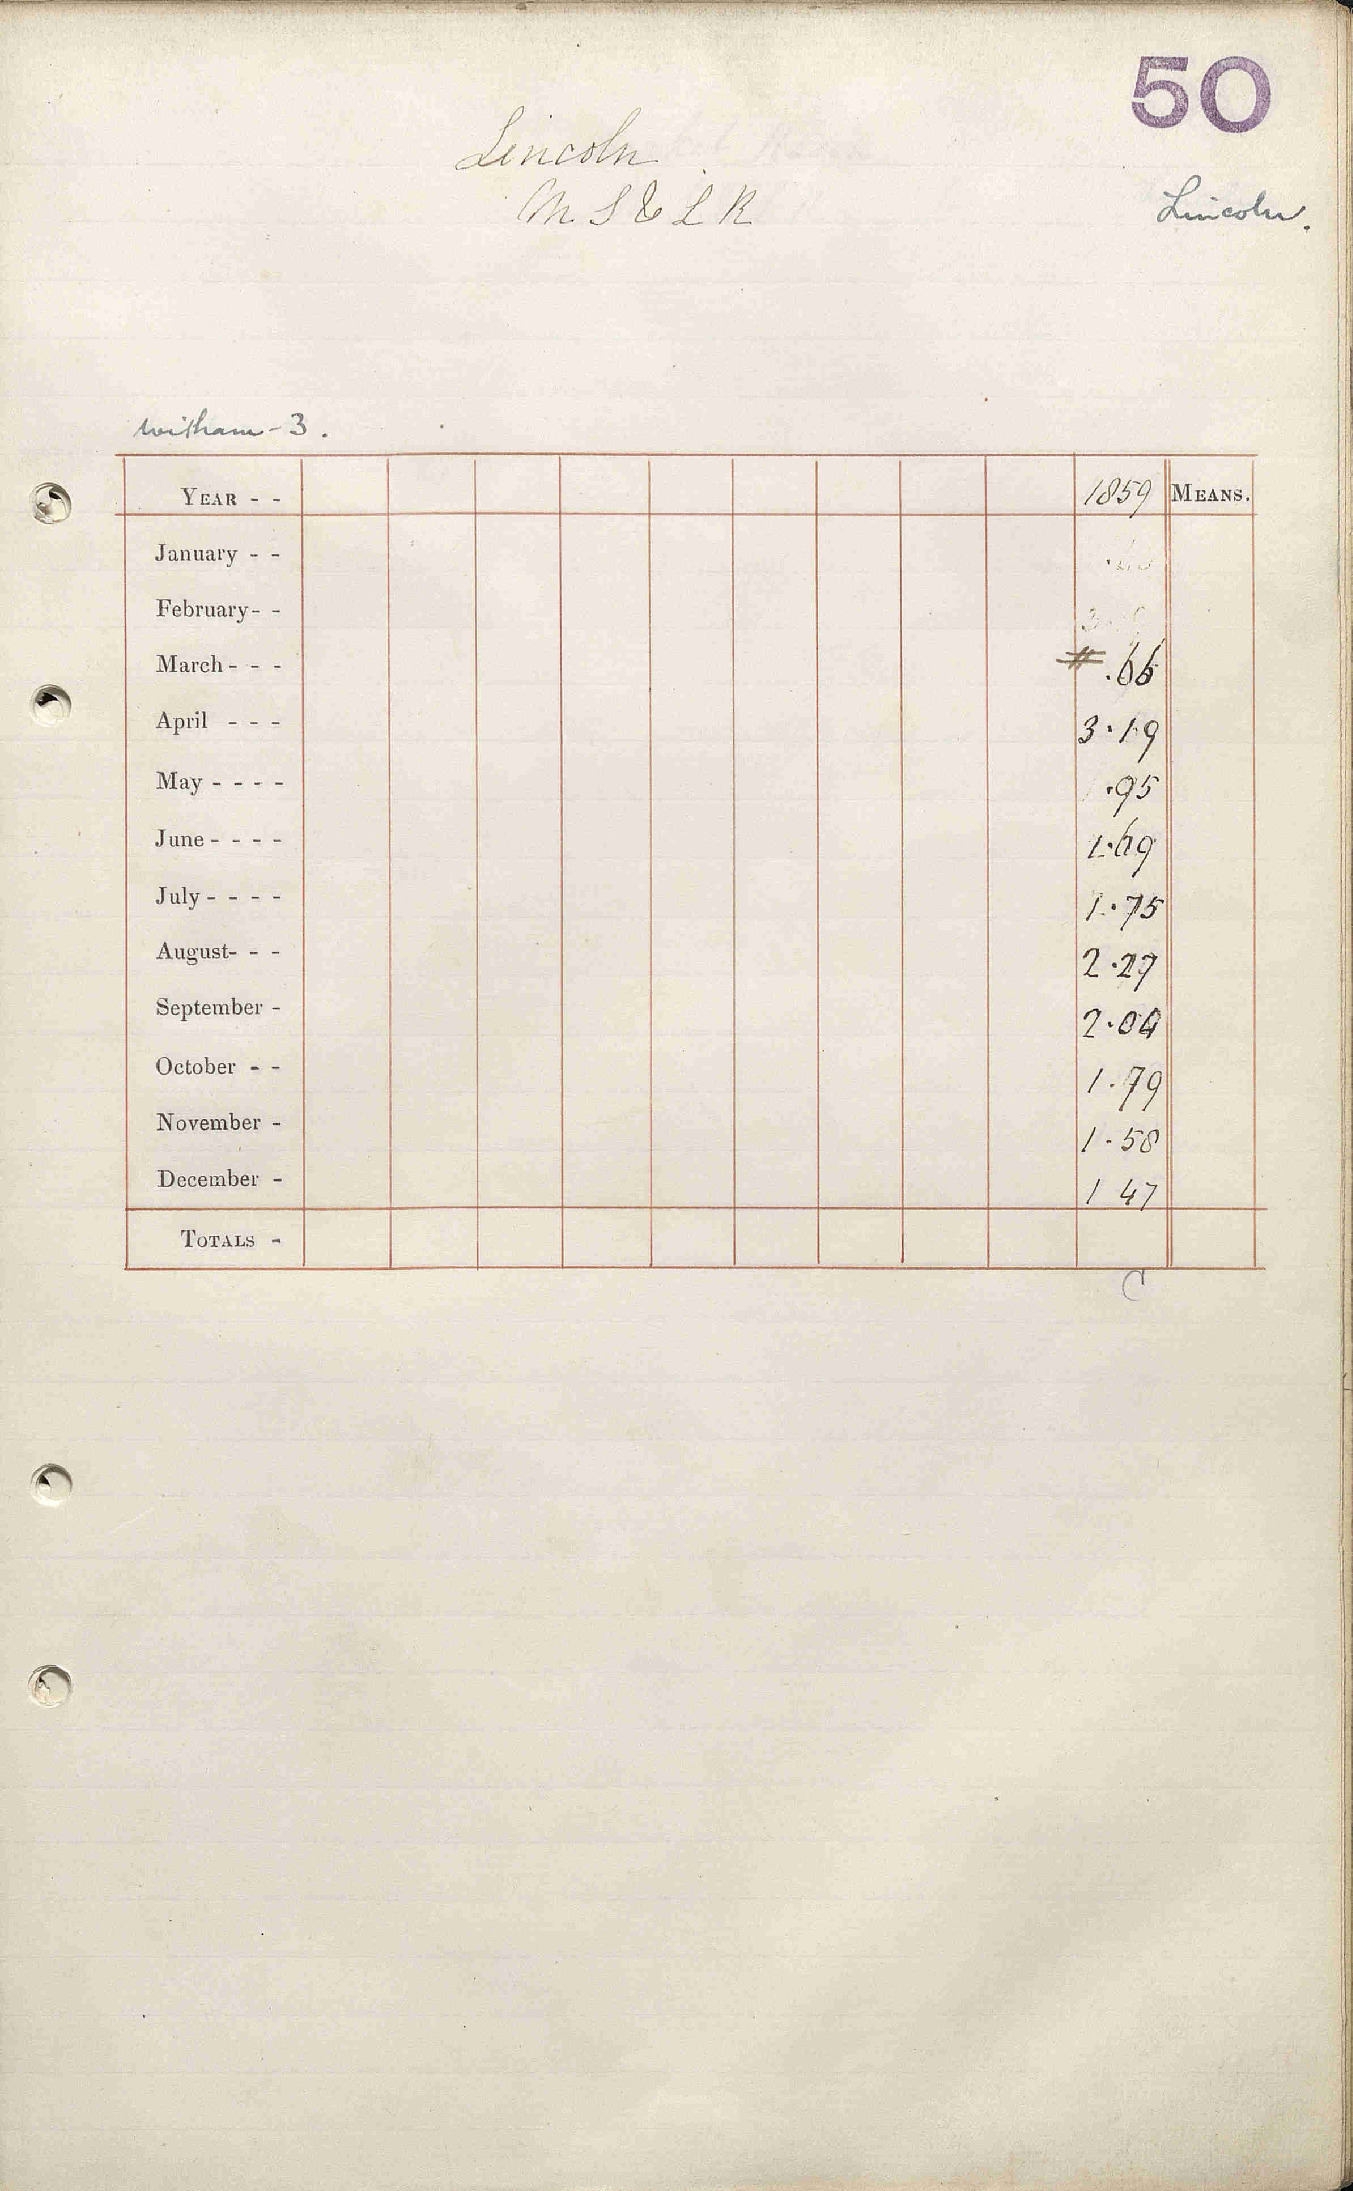 50
Lincoln
M S & L R
Lincoln.
Witham - 3.
YEAR - - 1859 MEANS.
January - -
February - -
March - - - .66
April - - - 3.19
May - - - - .95
June - - - - 1.69
July - - - - 1.75
August - - - 2.27
September - 2.04
October - - 1.79
November - 1.58
December - 1 47
TOTALS -
C